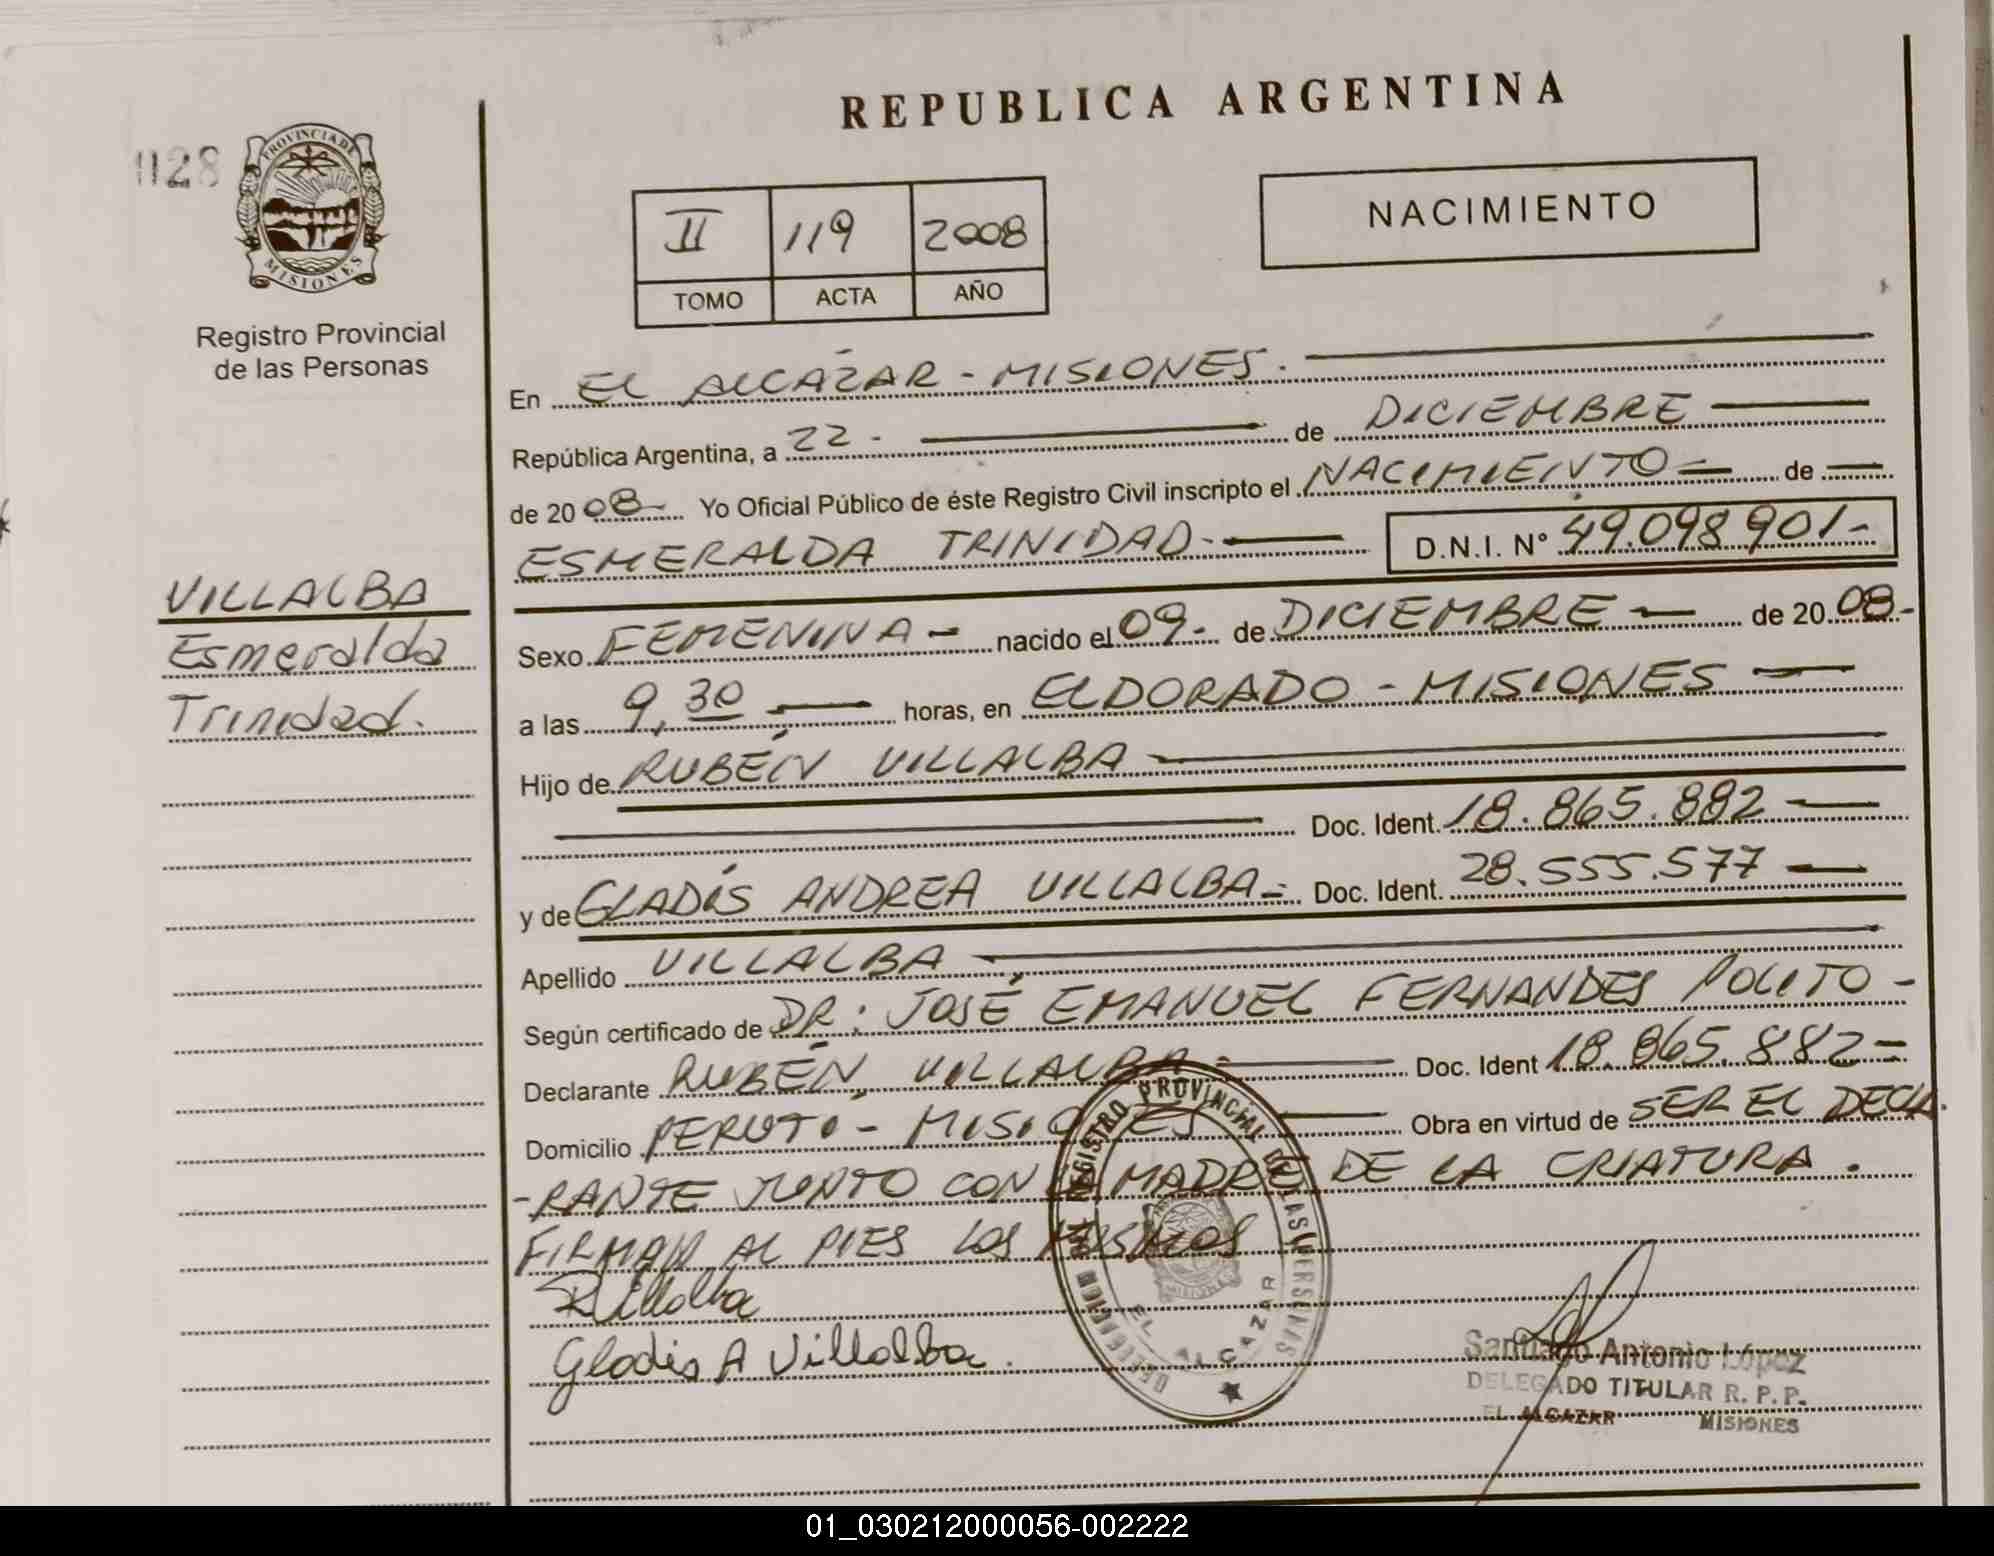 REPUBLICA ARGENTINA
1128
PROVINCIA DE
MISIONES
Registro Provincial
de las Personas
II 119 2008
TOMO ACTA AÑO
NACIMIENTO
En EL ALCÁZAR - MISIONES.
República Argentina, a 22 - de DICIEMBRE
de 20 08 Yo Oficial Público de éste Registro Civil inscripto el NACIMIENTO = de
ESMERALDA TRINIDAD - D.N.I. N° 49.098.901-
VILLALBA
Esmeralda
Trinidad.
Sexo FEMENINA - nacido el 09 - de DICIEMBRE de 20 08 -
a las 9,30 horas, en ELDORADO - MISIONES
Hijo de RUBÉN VILLALBA
Doc. Ident. 18.865.882
y de GLADIS ANDREA VILLALBA = Doc. Ident. 28.555.577
Apellido VILLALBA
Según certificado de DR: JOSÉ EMANUEL FERNANDES POLITO -
Declarante RUBÉN VILLALBA = Doc. Ident 18.865.882 =
Domicilio PERUTÍ - MISIONES Obra en virtud de SER EL DECLA.
-RANTE JUNTO CON LA MADRE DE LA CRIATURA.
FIRMAN AL PIES LOS MISMOS
R Villalba
Gladis A Villalba.
REGISTRO PROVINCIAL DE LAS PERSONAS
EL ALCAZAR
Santiago Antonio López
DELEGADO TITULAR R. P. P.
EL ALCAZAR MISIONES
01_030212000056-002222